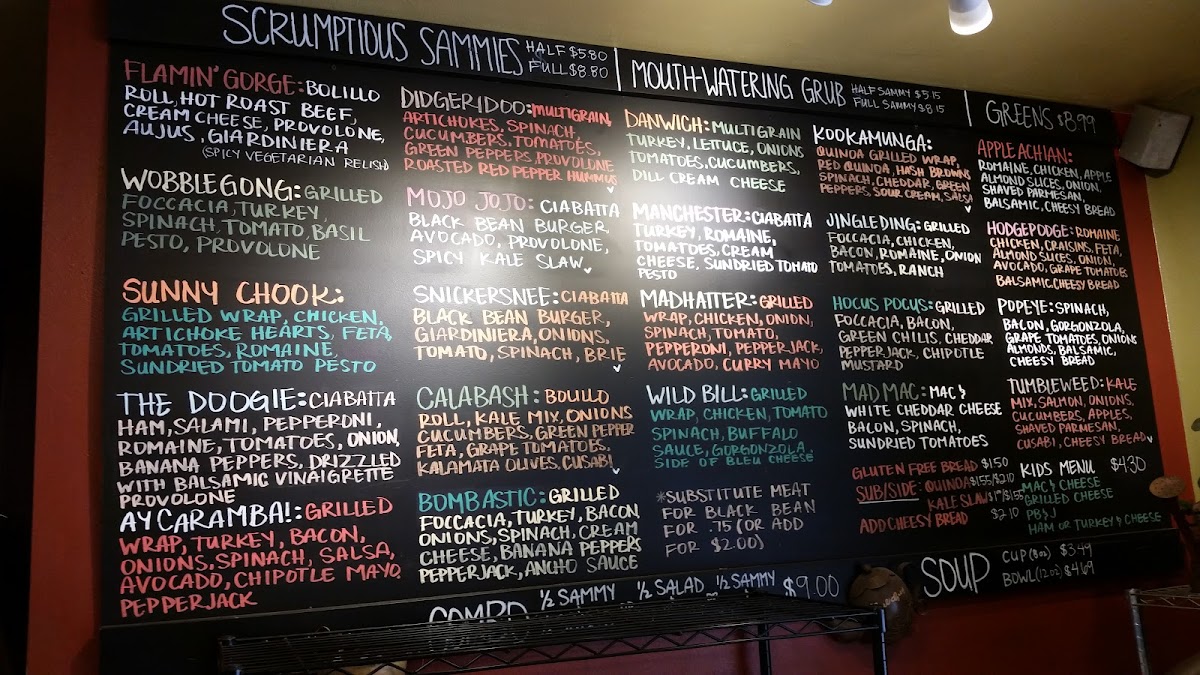 SCRUMPTIOUS SAMMIES
HALF $5.80
FULL $8.80
FLAMIN' GORGE: BOLILLO
ROLL, HOT ROAST BEEF,
CREAM CHEESE, PROVOLONE,
AUJUS, GIARDINIERA
(SPICY VEGETARIAN RELISH)
WOBBLEGONG: GRILLED
FOCCACIA, TURKEY,
SPINACH, TOMATO, BASIL
PESTO, PROVOLONE
SUNNY CHOOK:
GRILLED WRAP, CHICKEN,
ARTICHOKE HEARTS, FETA,
TOMATOES, ROMAINE,
SUNDRIED TOMATO PESTO
THE DOOGIE: CIABATTA
HAM, SALAMI, PEPPERONI,
ROMAINE, TOMATOES, ONION,
BANANA PEPPERS, DRIZZLED
WITH BALSAMIC VINAIGRETTE
PROVOLONE
AY CARAMBA!: GRILLED
WRAP, TURKEY, BACON,
ONIONS, SPINACH, SALSA,
AVOCADO, CHIPOTLE MAYO,
PEPPERJACK
DIDGERIDOO: MULTIGRAIN,
ARTICHOKES, SPINACH,
CUCUMBERS, TOMATOES,
GREEN PEPPERS, PROVOLONE
ROASTED RED PEPPER HUMMUS
MOJO JOJO: CIABATTA
BLACK BEAN BURGER,
AVOCADO, PROVOLONE,
SPICY KALE SLAW
SNICKERSNEE: CIABATTA
BLACK BEAN BURGER,
GIARDINIERA, ONIONS,
TOMATO, SPINACH, BRIE
CALABASH: BOLILLO
ROLL, KALE MIX, ONIONS
CUCUMBERS, GREEN PEPPER
FETA, GRAPE TOMATOES,
KALAMATA OLIVES, CUSABI
BOMBASTIC: GRILLED
FOCCACIA, TURKEY, BACON,
ONIONS, SPINACH, CREAM
CHEESE, BANANA PEPPERS
PEPPERJACK, ANCHO SAUCE
MOUTH-WATERING GRUB
HALF SAMMY $5.15
FULL SAMMY $8.15
DANWICH: MULTIGRAIN
TURKEY, LETTUCE, ONIONS
TOMATOES, CUCUMBERS,
DILL CREAM CHEESE
MANCHESTER: CIABATTA
TURKEY, ROMAINE,
TOMATOES, CREAM
CHEESE, SUNDRIED TOMATO
PESTO
MADHATTER: GRILLED
WRAP, CHICKEN, ONION,
SPINACH, TOMATO,
PEPPERONI, PEPPERJACK,
AVOCADO, CURRY MAYO
WILD BILL: GRILLED
WRAP, CHICKEN, TOMATO
SPINACH, BUFFALO
SAUCE, GORGONZOLA,
SIDE OF BLEU CHEESE
*SUBSTITUTE MEAT
FOR BLACK BEAN
FOR .75 (OR ADD
FOR $2.00)
KOOKAMUNGA:
QUINOA GRILLED WRAP,
RED QUINOA, HASH BROWNS
SPINACH, CHEDDAR, GREEN
PEPPERS, SOUR CREAM, SALSA
JINGLEDING: GRILLED
FOCCACIA, CHICKEN,
BACON, ROMAINE, ONION
TOMATOES, RANCH
HOCUS POCUS: GRILLED
FOCCACIA, BACON,
GREEN CHILIS, CHEDDAR
PEPPERJACK, CHIPOTLE
MUSTARD
MAD MAC: MAC &
WHITE CHEDDAR CHEESE
BACON, SPINACH,
SUNDRIED TOMATOES
GLUTEN FREE BREAD $1.50
SUB/SIDE: QUINOA $1.55/$2.10
KALE SLAW
ADD CHEESY BREAD $2.10
GREENS $8.99
APPLEACHIAN:
ROMAINE, CHICKEN, APPLE
ALMOND SLICES, ONION,
SHAVED PARMESAN,
BALSAMIC, CHEESY BREAD
HODGEPODGE: ROMAINE
CHICKEN, CRAISINS, FETA,
ALMOND SLICES, ONION,
AVOCADO, GRAPE TOMATOES
BALSAMIC, CHEESY BREAD
POPEYE: SPINACH,
BACON, GORGONZOLA,
GRAPE TOMATOES, ONIONS
ALMONDS, BALSAMIC,
CHEESY BREAD
TUMBLEWEED: KALE
MIX, SALMON, ONIONS,
CUCUMBERS, APPLES,
SHAVED PARMESAN,
CUSABI, CHEESY BREAD
KIDS MENU $4.30
MAC & CHEESE
GRILLED CHEESE
PB&J
HAM OR TURKEY & CHEESE
COMBO ½ SAMMY ½ SALAD ½ SAMMY $9.00
SOUP
CUP (8oz) $3.49
BOWL (12oz) $4.69